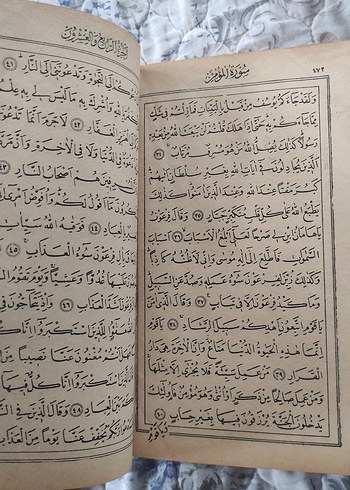 ١٧٢ سُورَةُ الْمُؤْمِنِ
وَلَقَدْ جَاءَكُمْ يُوسُفُ مِنْ قَبْلُ بِالْبَيِّنَاتِ فَمَا زِلْتُمْ فِي شَكٍّ
مِمَّا جَاءَكُمْ بِهِ حَتَّى إِذَا هَلَكَ قُلْتُمْ لَنْ يَبْعَثَ اللَّهُ مِنْ بَعْدِهِ
رَسُولًا كَذَلِكَ يُضِلُّ اللَّهُ مَنْ هُوَ مُسْرِفٌ مُرْتَابٌ ٣٤
الَّذِينَ يُجَادِلُونَ فِي آيَاتِ اللَّهِ بِغَيْرِ سُلْطَانٍ أَتَيهُمْ
كَبُرَ مَقْتًا عِنْدَ اللَّهِ وَعِنْدَ الَّذِينَ آمَنُوا كَذَلِكَ
يَطْبَعُ اللَّهُ عَلَى كُلِّ قَلْبِ مُتَكَبِّرٍ جَبَّارٍ ٣٥ وَقَالَ فِرْعَوْنُ
يَا هَامَانُ ابْنِ لِي صَرْحًا لَعَلِّي أَبْلُغُ الْأَسْبَابَ ٣٦ أَسْبَابَ
السَّمَوَاتِ فَأَطَّلِعَ إِلَى إِلَهِ مُوسَى وَإِنِّي لَأَظُنُّهُ كَاذِبًا
وَكَذَلِكَ زُيِّنَ لِفِرْعَوْنَ سُوءُ عَمَلِهِ وَصُدَّ عَنِ السَّبِيلِ
وَمَا كَيْدُ فِرْعَوْنَ إِلَّا فِي تَبَابٍ ٣٧ وَقَالَ الَّذِي آمَنَ
يَا قَوْمِ اتَّبِعُونِ أَهْدِكُمْ سَبِيلَ الرَّشَادِ ٣٨ يَا قَوْمِ
إِنَّمَا هَذِهِ الْحَيَوةُ الدُّنْيَا مَتَاعٌ وَإِنَّ الْآخِرَةَ هِيَ دَارُ
الْقَرَارِ ٣٩ مَنْ عَمِلَ سَيِّئَةً فَلَا يُجْزَى إِلَّا مِثْلَهَا
وَمَنْ عَمِلَ صَالِحًا مِنْ ذَكَرٍ أَوْ أُنْثَى وَهُوَ مُؤْمِنٌ فَأُولَئِكَ
يَدْخُلُونَ الْجَنَّةَ يُرْزَقُونَ فِيهَا بِغَيْرِ حِسَابٍ ٤٠
وَيَا قَوْمِ
الْجُزْءُ الرَّابِعُ وَالْعِشْرُونَ
أَدْعُوكُمْ إِلَى النَّجَوةِ وَتَدْعُونَنِي إِلَى النَّارِ ٤١
لِأَكْفُرَ بِاللَّهِ وَأُشْرِكَ بِهِ مَا لَيْسَ لِي بِهِ عِلْمٌ
الْعَزِيزِ الْغَفَّارِ ٤٢ لَا جَرَمَ أَنَّمَا تَدْعُونَنِي
دَعْوَةٌ فِي الدُّنْيَا وَلَا فِي الْآخِرَةِ وَأَنَّ مَرَدَّنَا
الْمُسْرِفِينَ هُمْ أَصْحَابُ النَّارِ ٤٣
فَسَتَذْكُرُونَ مَا أَقُولُ لَكُمْ وَأُفَوِّضُ أَمْرِي
بِالْعِبَادِ ٤٤ فَوَقَيهُ اللَّهُ سَيِّئَاتِ
بِآلِ فِرْعَوْنَ سُوءُ الْعَذَابِ ٤٥
يُعْرَضُونَ عَلَيْهَا غُدُوًّا وَعَشِيًّا وَيَوْمَ تَقُومُ
أَشَدَّ الْعَذَابِ ٤٦ وَإِذْ يَتَحَاجُّونَ فِي
الضُّعَفَاءُ لِلَّذِينَ اسْتَكْبَرُوا إِنَّا
فَهَلْ أَنْتُمْ مُغْنُونَ عَنَّا نَصِيبًا مِنَ
الَّذِينَ اسْتَكْبَرُوا إِنَّا كُلٌّ فِيهَا
بَيْنَ الْعِبَادِ ٤٨ وَقَالَ الَّذِينَ فِي
ادْعُوا رَبَّكُمْ يُخَفِّفْ عَنَّا يَوْمًا مِنَ الْعَذَابِ